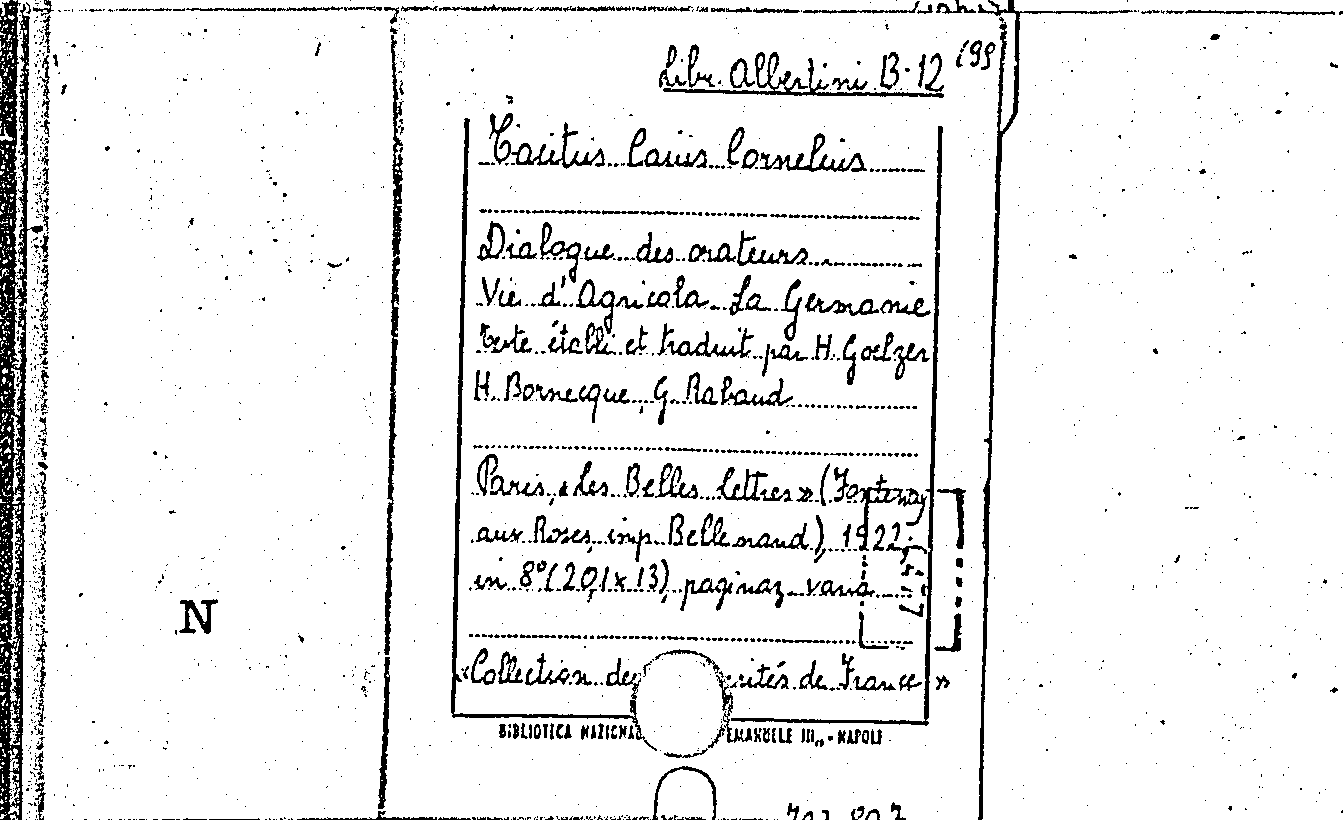 Libr. Albertini B. 12 (99
Tacitus Caius Cornelius
Dialogue des orateurs
Vie d'Agricola. La Germanie
texte établi et traduit par H. Goelzer
H. Bornecque, G. Rabaud
Paris, «Les Belles lettres» (Fontenay
aux Roses, imp. Bellenand), 1922;
in 8° (20,1 x 13), paginaz. varia
N
«Collection de de France»
BIBLIOTECA EMANUELE III„ - NAPOLI